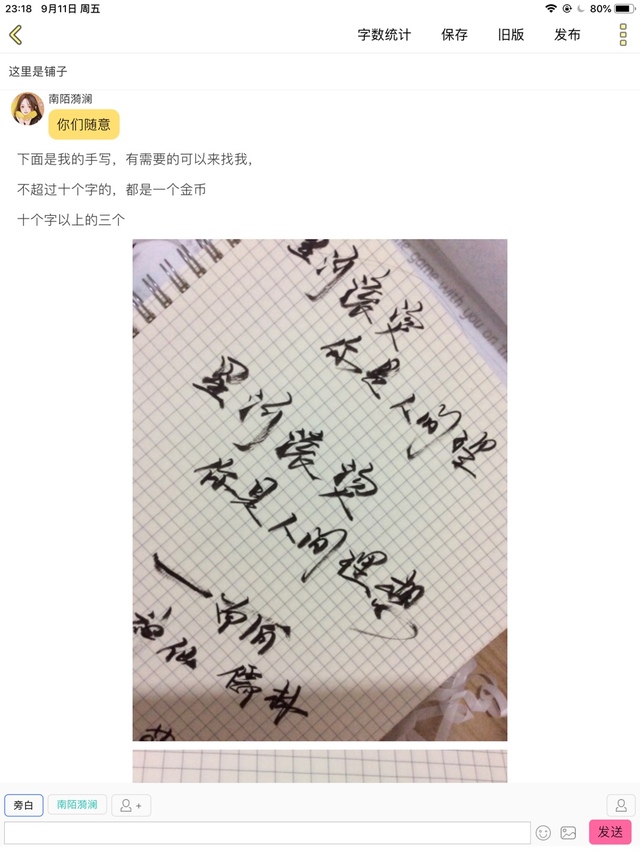 23:18 9月11日 周五 80%
字数统计 保存 旧版 发布
这里是铺子
南陌漪澜
你们随意
下面是我的手写，有需要的可以来找我，
不超过十个字的，都是一个金币
十个字以上的三个
game with you on
星河滚烫
你是人间理
星河滚烫
你是人间理想
旁白 南陌漪澜
发送